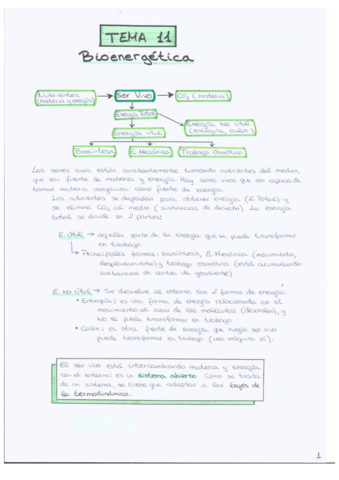 TEMA 11
Bioenergética
Nutrientes (materia y energía)
Ser Vivo
CO₂ (materia)
Energía Total
Energía No Útil (entropía, calor)
Energía Útil
Biosíntesis
E. Mecánica
Trabajo Osmótico
Los seres vivos están constantemente tomando nutrientes del medio,
que son fuente de materia y energía. Hay seres vivos que son capaces de
tomar materia inorgánica como fuente de energía.
Los nutrientes se degradan para obtener energía (E Total) y
se elimina CO₂ al medio (sustancias de desecho). La energía
total se divide en 2 partes:
E. ÚTIL → aquella parte de la energía que se puede transformar
en trabajo.
↳ Principales formas: biosíntesis, E. Mecánica (movimiento,
desplazamiento) y trabajo osmótico (está acumulando
sustancias en contra de gradiente).
E. NO ÚTIL → Se devuelve al entorno. Son 2 formas de energía:
• Entropía: es una forma de energía relacionada con el
movimiento al azar de las moléculas (desorden), y
NO se puede transformar en trabajo
• Calor: es otra fuente de energía que ningún ser vivo
puede transformar en trabajo (una máquina sí).
El ser vivo está intercambiando materia y energía
con el entorno: es un sistema abierto. Como se trata
de un sistema, se tiene que adaptar a las leyes de
la termodinámica.
1